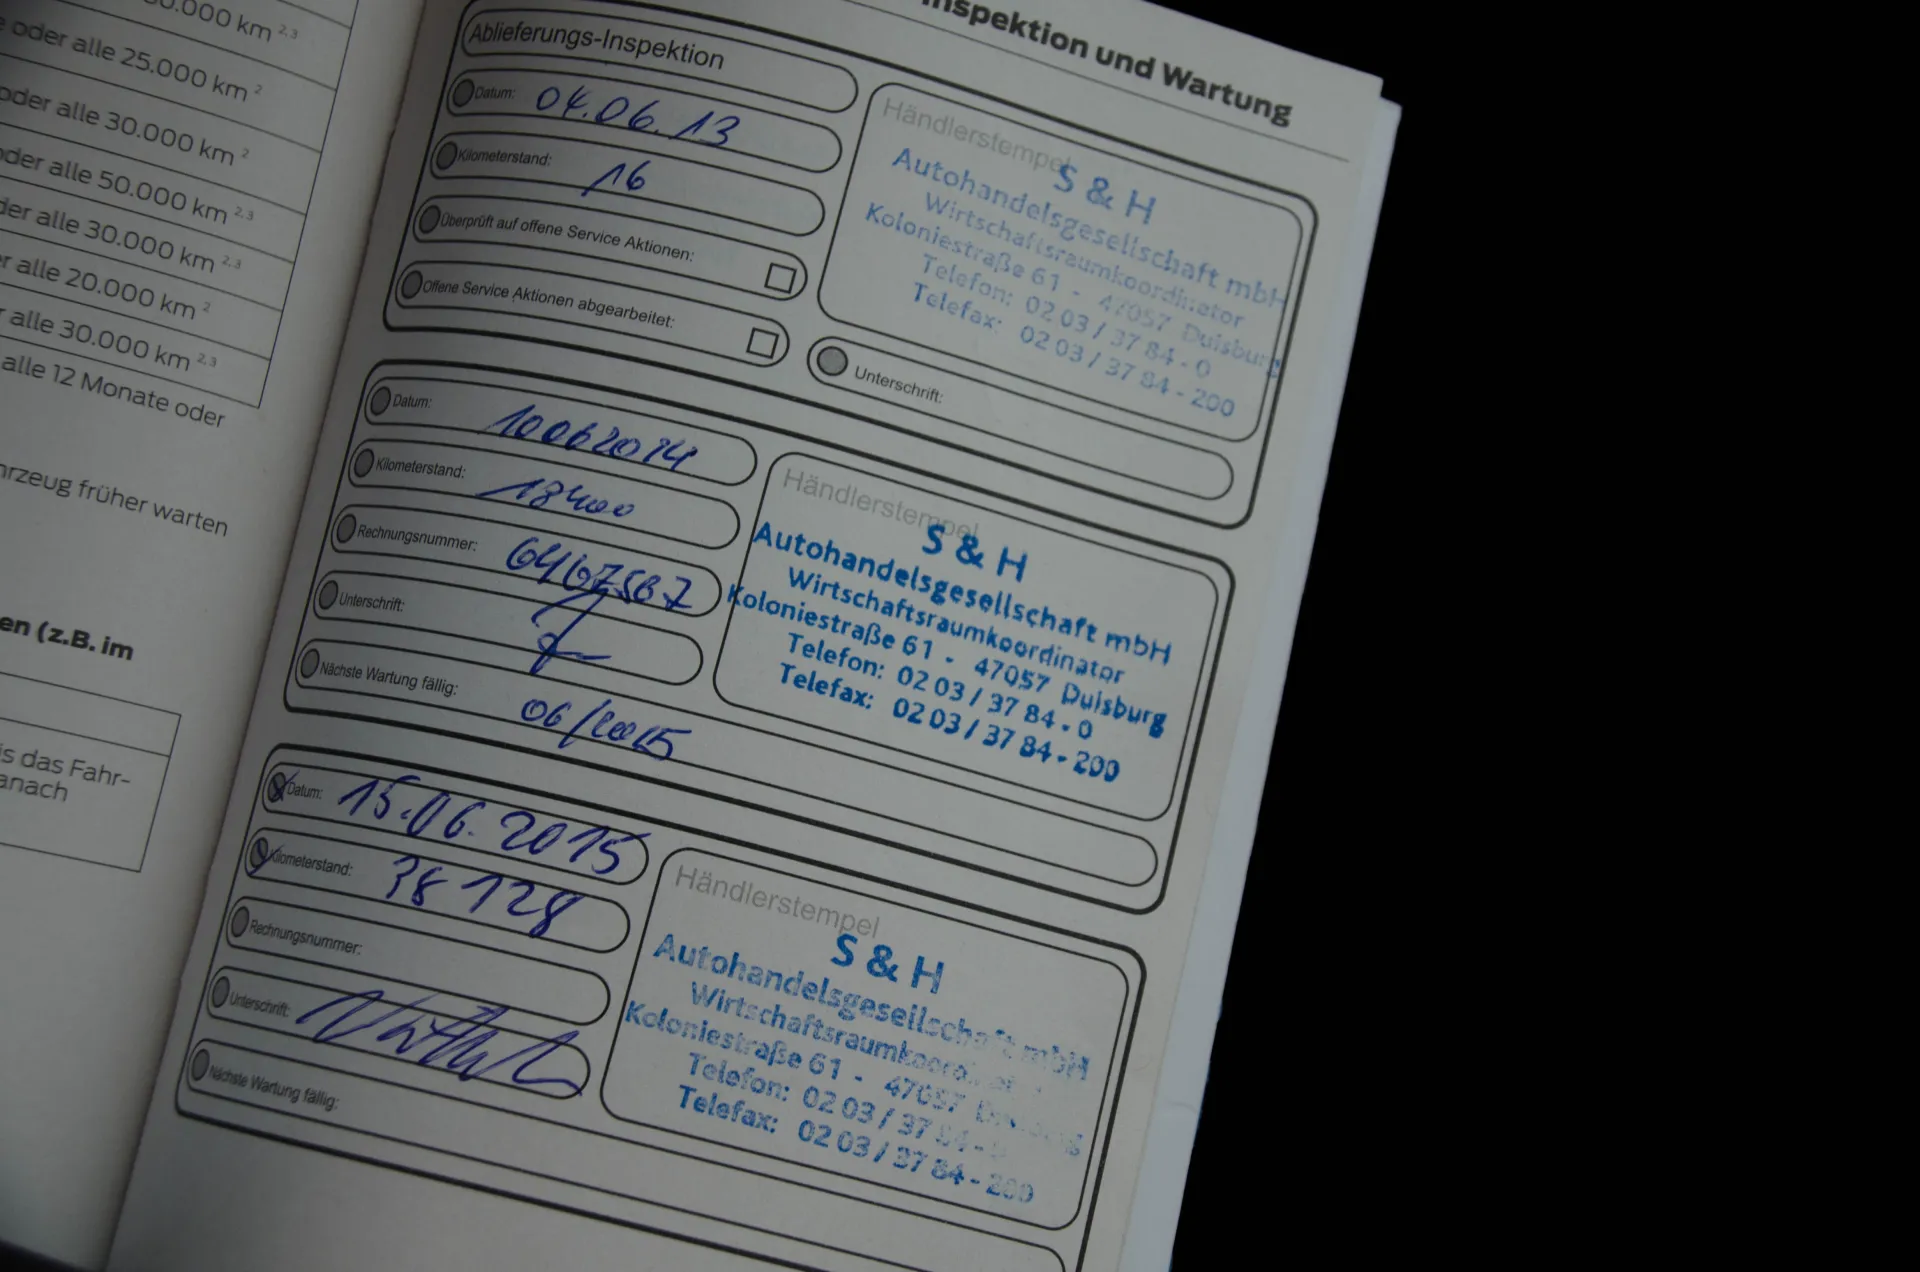 0.000 km 2,3
e oder alle 25.000 km 2
oder alle 30.000 km 2
oder alle 50.000 km 2,3
der alle 30.000 km 2,3
er alle 20.000 km 2
r alle 30.000 km 2,3
alle 12 Monate oder
hrzeug früher warten
en (z.B. im
is das Fahr-
anach
Inspektion und Wartung
Ablieferungs-Inspektion
Datum: 04.06.13
Kilometerstand: 16
Überprüft auf offene Service Aktionen:
Offene Service Aktionen abgearbeitet:
Händlerstempel
S & H
Autohandelsgesellschaft mbH
Wirtschaftsraumkoordinator
Koloniestraße 61 - 47057 Duisburg
Telefon: 02 03 / 37 84 - 0
Telefax: 02 03 / 37 84 - 200
Unterschrift:
Datum: 10062014
Kilometerstand: 18400
Rechnungsnummer:
Unterschrift:
Nächste Wartung fällig: 06/2015
Händlerstempel
S & H
Autohandelsgesellschaft mbH
Wirtschaftsraumkoordinator
Koloniestraße 61 - 47057 Duisburg
Telefon: 02 03 / 37 84 - 0
Telefax: 02 03 / 37 84 - 200
Datum: 15.06.2015
Kilometerstand: 38 128
Rechnungsnummer:
Unterschrift:
Nächste Wartung fällig:
Händlerstempel
S & H
Autohandelsgesellschaft mbH
Wirtschaftsraumkoordinator
Koloniestraße 61 - 47057 Duisburg
Telefon: 02 03 / 37 84 - 0
Telefax: 02 03 / 37 84 - 200